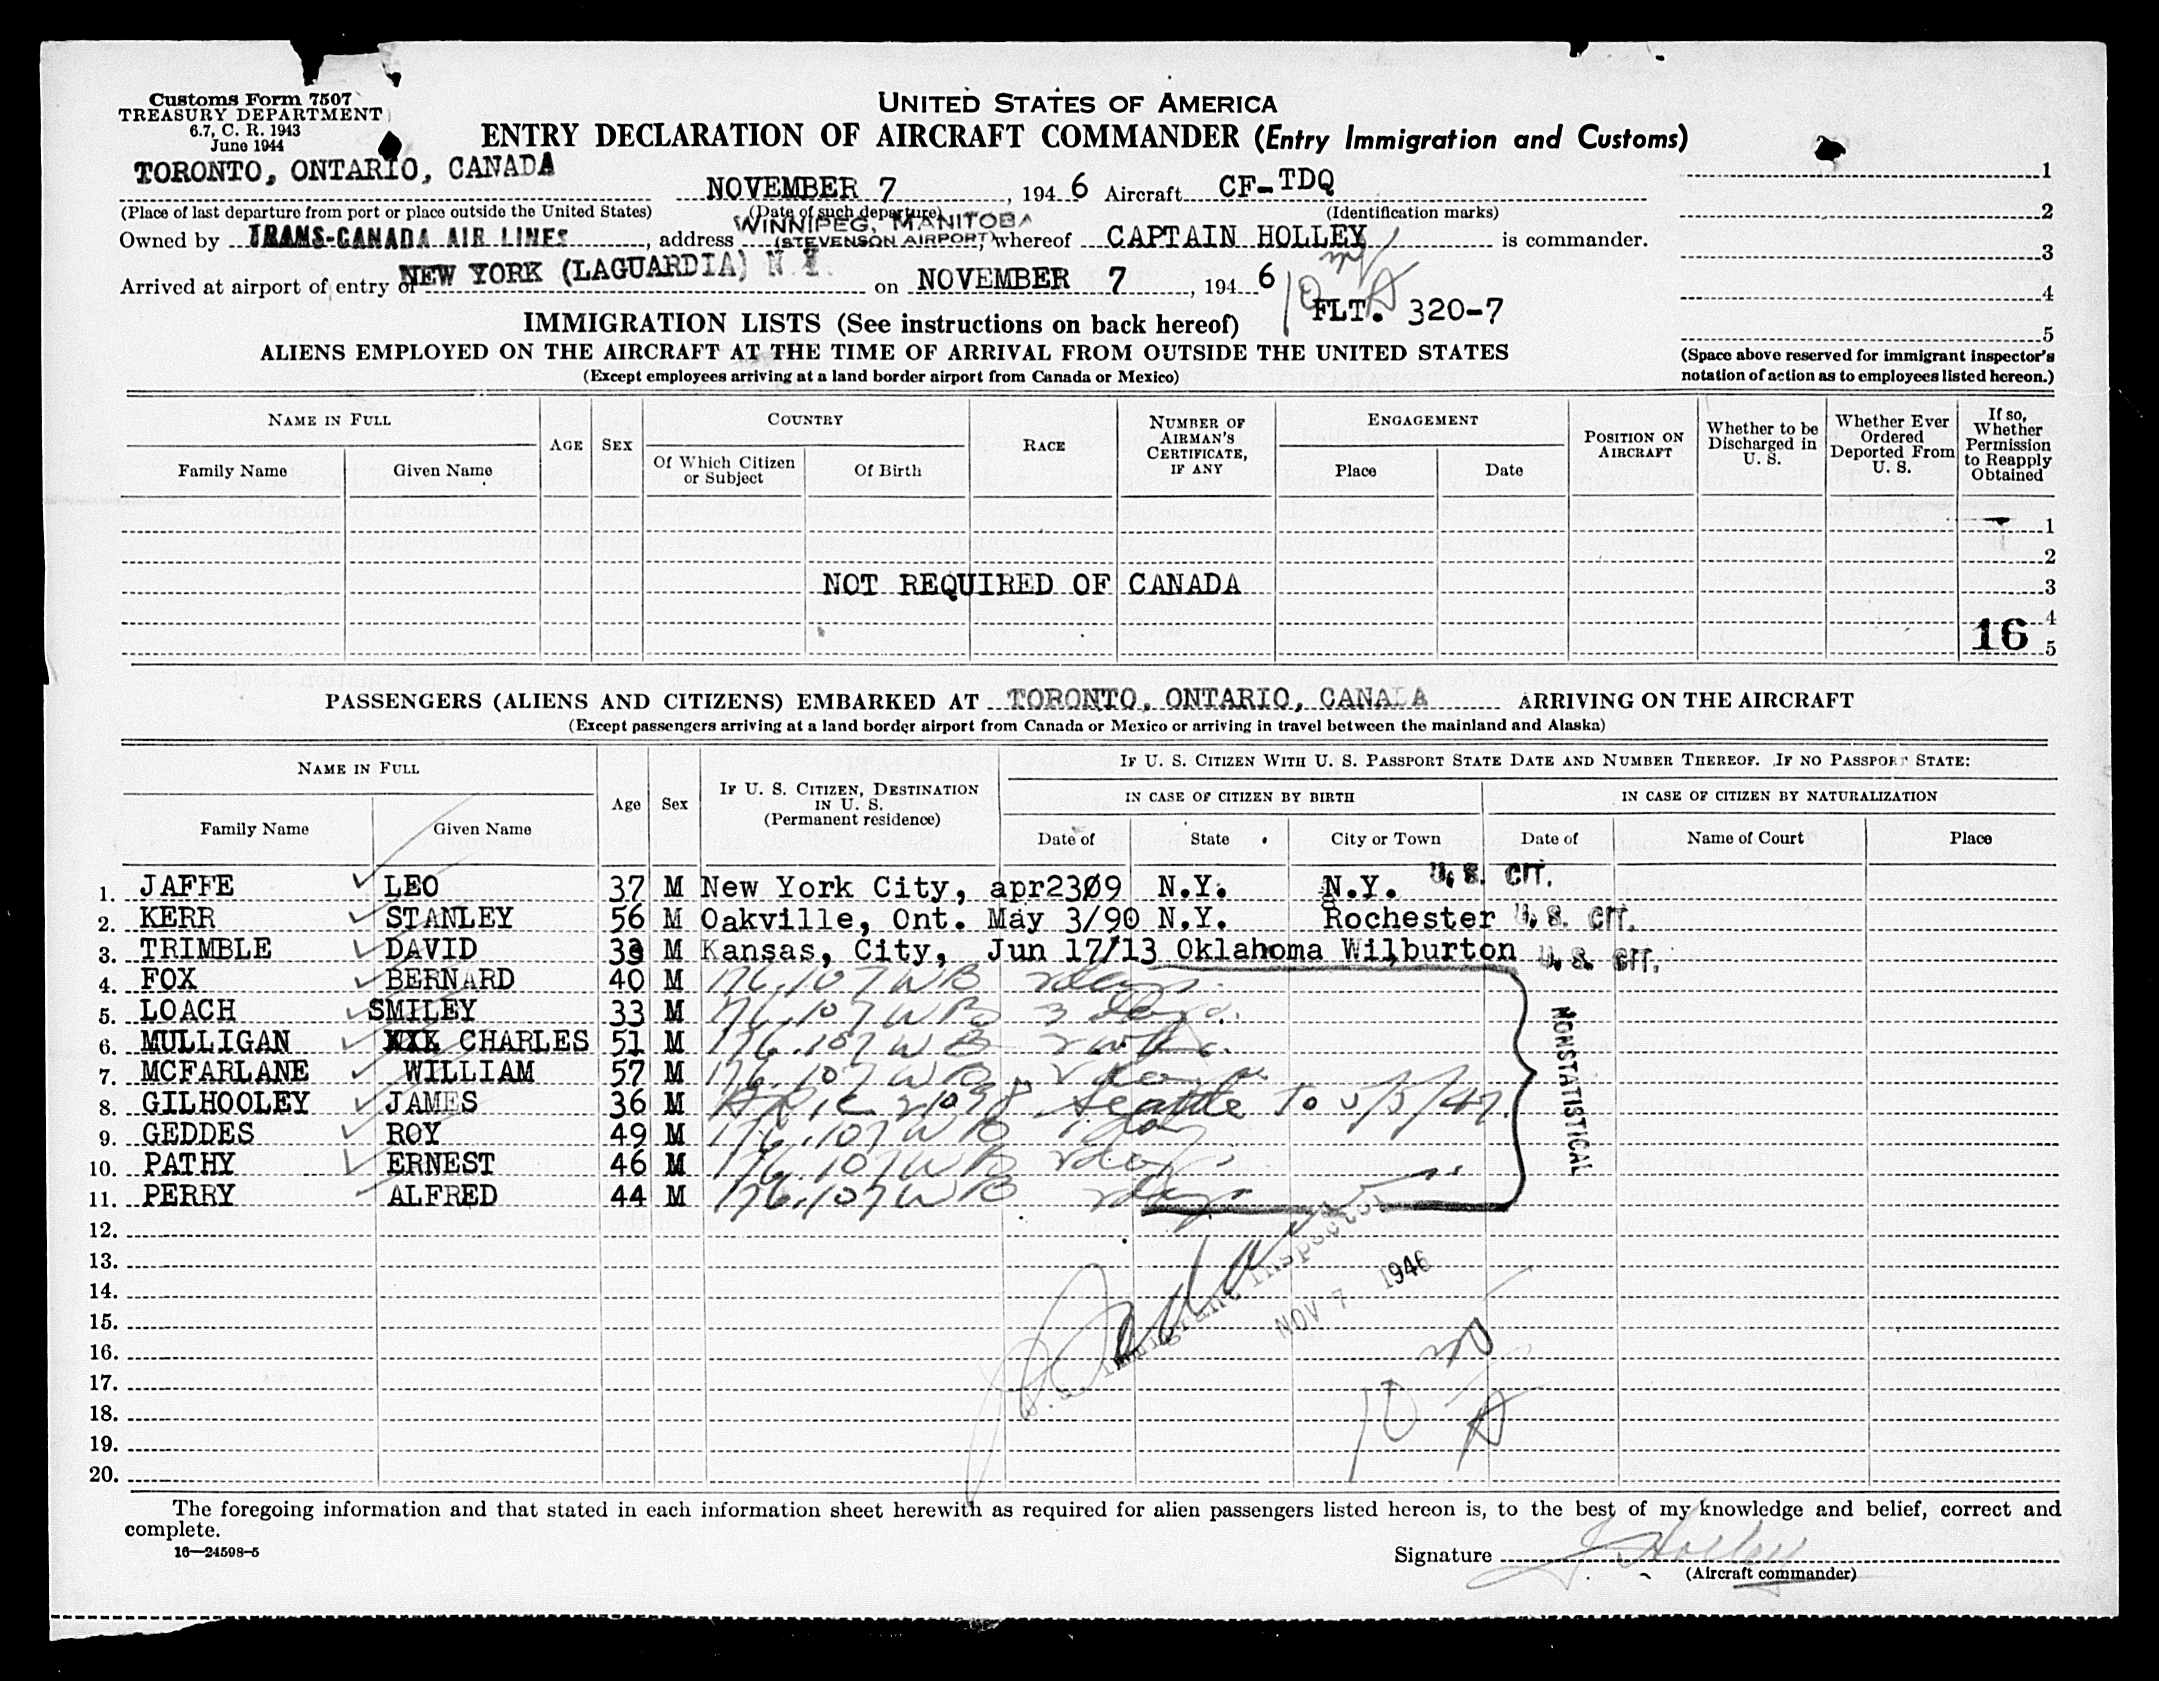 Customs Form 7507
TREASURY DEPARTMENT
6.7, C. R. 1943
June 1944
UNITED STATES OF AMERICA
ENTRY DECLARATION OF AIRCRAFT COMMANDER (Entry Immigration and Customs)
TORONTO, ONTARIO, CANADA NOVEMBER 7, 1946 Aircraft CF-TDQ
(Place of last departure from port or place outside the United States) (Date of such departure) (Identification marks)
WINNIPEG, MANITOBA
Owned by TRANS-CANADA AIR LINES, address (STEVENSON AIRPORT) whereof CAPTAIN HOLLEY is commander.
Arrived at airport of entry of NEW YORK (LAGUARDIA) N.Y. on NOVEMBER 7, 1946
FLT. 320-7
1
2
3
4
5
(Space above reserved for immigrant inspector's
notation of action as to employees listed hereon.)
IMMIGRATION LISTS (See instructions on back hereof)
ALIENS EMPLOYED ON THE AIRCRAFT AT THE TIME OF ARRIVAL FROM OUTSIDE THE UNITED STATES
(Except employees arriving at a land border airport from Canada or Mexico)
NAME IN FULL
Family Name Given Name
AGE SEX
COUNTRY
Of Which Citizen or Subject Of Birth
RACE
NUMBER OF AIRMAN'S CERTIFICATE, IF ANY
ENGAGEMENT
Place Date
POSITION ON AIRCRAFT
Whether to be Discharged in U. S.
Whether Ever Ordered Deported From U. S.
If so, Whether Permission to Reapply Obtained
1
2
NOT REQUIRED OF CANADA 3
4
16 5
PASSENGERS (ALIENS AND CITIZENS) EMBARKED AT TORONTO, ONTARIO, CANADA ARRIVING ON THE AIRCRAFT
(Except passengers arriving at a land border airport from Canada or Mexico or arriving in travel between the mainland and Alaska)
NAME IN FULL
Family Name Given Name
Age Sex
IF U. S. CITIZEN, DESTINATION IN U. S. (Permanent residence)
IF U. S. CITIZEN WITH U. S. PASSPORT STATE DATE AND NUMBER THEREOF. IF NO PASSPORT STATE:
IN CASE OF CITIZEN BY BIRTH IN CASE OF CITIZEN BY NATURALIZATION
Date of State City or Town Date of Name of Court Place
1. JAFFE LEO 37 M New York City, apr2309 N.Y. N.Y. U. S. CIT.
2. KERR STANLEY 56 M Oakville, Ont. May 3/90 N.Y. Rochester U. S. CIT.
3. TRIMBLE DAVID 33 M Kansas, City, Jun 17/13 Oklahoma Wilburton U. S. CIT.
4. FOX BERNARD 40 M 176.107 WB 2 days
5. LOACH SMILEY 33 M 176.107 WB 3 days.
6. MULLIGAN XXX CHARLES 51 M 176.107 WB 2 wks.
7. MCFARLANE WILLIAM 57 M 176.107 WB 2 days
8. GILHOOLEY JAMES 36 M Seattle To 5/5/47
9. GEDDES ROY 49 M 176.107 WB 1 day
10. PATHY ERNEST 46 M 176.107 WB 2 days
11. PERRY ALFRED 44 M 176.107 WB 2 days
NONSTATISTICAL
12.
13.
14.
15.
16.
17.
18.
19.
20.
U.S. Immigrant Inspector
NOV 7 1946
The foregoing information and that stated in each information sheet herewith as required for alien passengers listed hereon is, to the best of my knowledge and belief, correct and
complete.
16—24598-5
Signature J. Holley
(Aircraft commander)